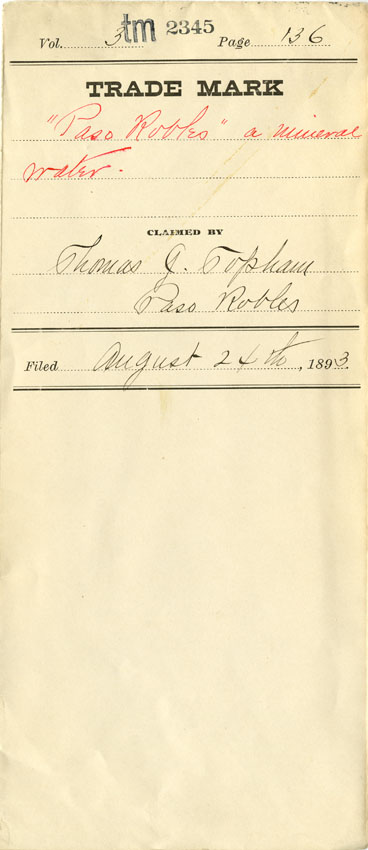 Vol. 3 tm 2345 Page 136
TRADE MARK
"Paso Robles" a mineral
water.
CLAIMED BY
Thomas J. Topham
Paso Robles
Filed August 24th, 1893.